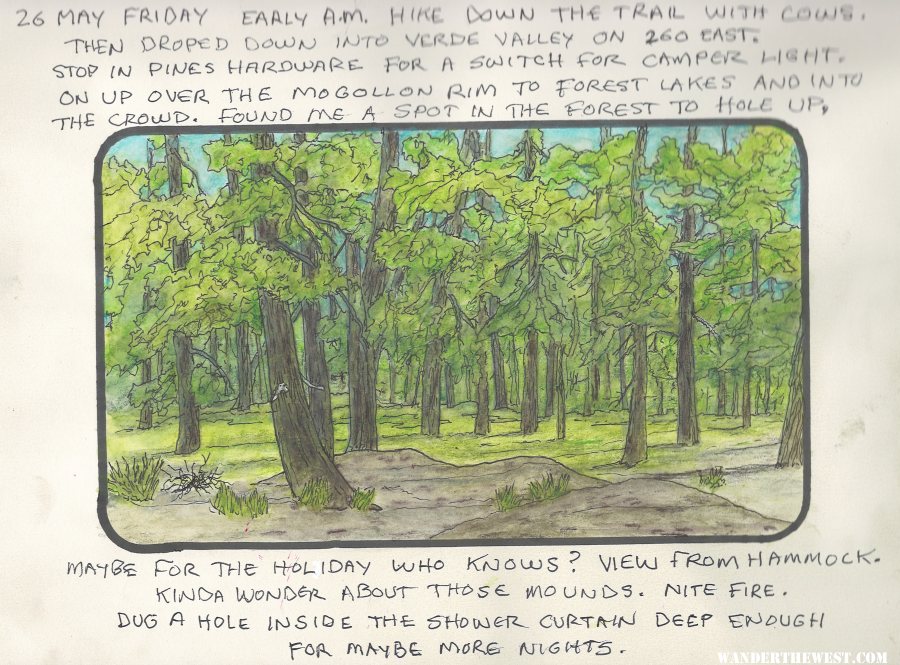 26 MAY FRIDAY EARLY A.M. HIKE DOWN THE TRAIL WITH COWS.
THEN DROPED DOWN INTO VERDE VALLEY ON 260 EAST.
STOP IN PINES HARDWARE FOR A SWITCH FOR CAMPER LIGHT.
ON UP OVER THE MOGOLLON RIM TO FOREST LAKES AND INTO
THE CROWD. FOUND ME A SPOT IN THE FOREST TO HOLE UP,
MAYBE FOR THE HOLIDAY WHO KNOWS? VIEW FROM HAMMOCK.
KINDA WONDER ABOUT THOSE MOUNDS. NITE FIRE.
DUG A HOLE INSIDE THE SHOWER CURTAIN DEEP ENOUGH
FOR MAYBE MORE NIGHTS.
WANDERTHEWEST.COM